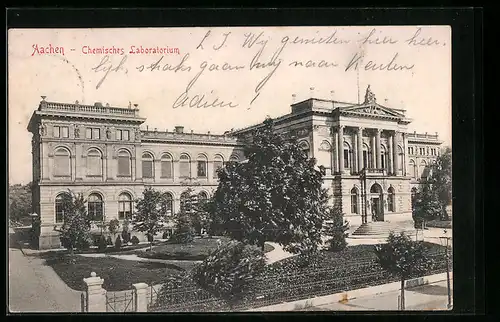 Aachen - Chemisches Laboratorium
L. J. Wij genieten hier hier.
straks gaan wij naar Keulen
Adieu